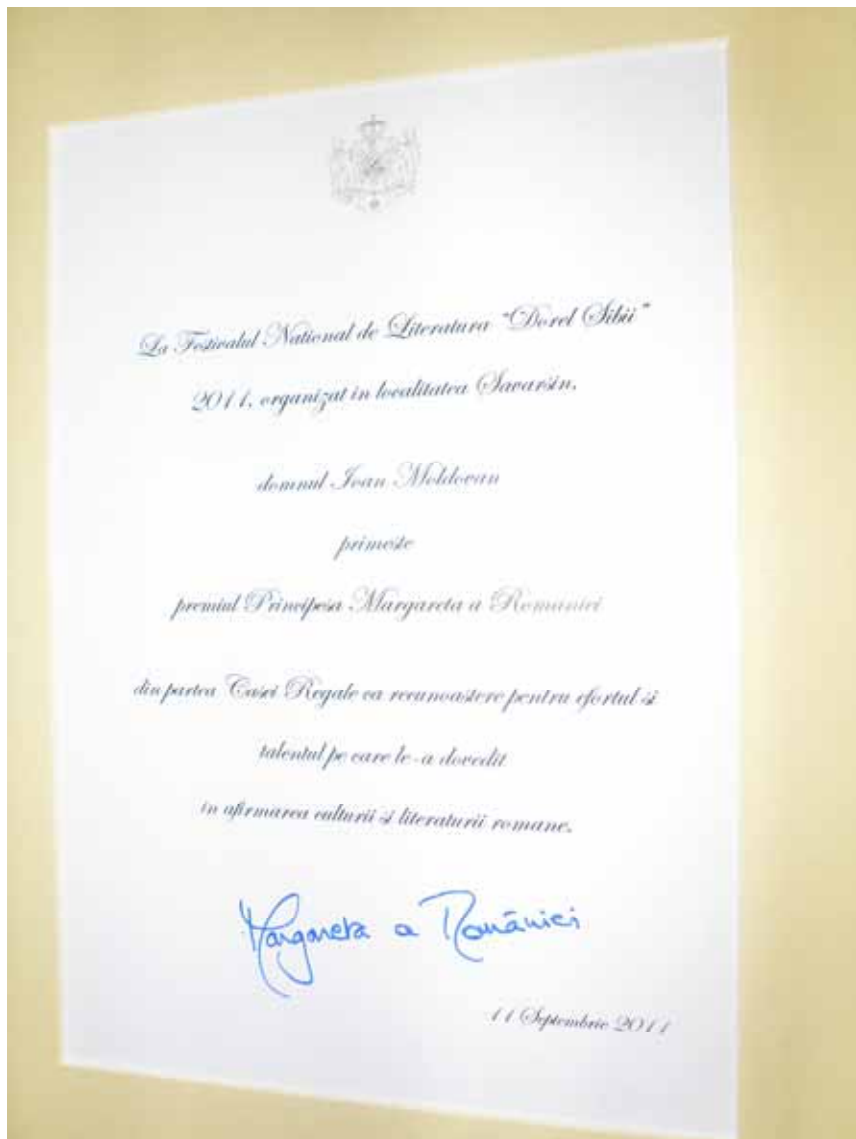 La Festivalul National de Literatura "Dorel Sibii"
2011, organizat in localitatea Savarsin,
domnul Ioan Moldovan
primeste
premiul Principesa Margareta a Romaniei
din partea Casei Regale ca recunoastere pentru efortul si
talentul pe care le-a dovedit
in afirmarea culturii si literaturii romane.
Margareta a României
11 Septembrie 2011